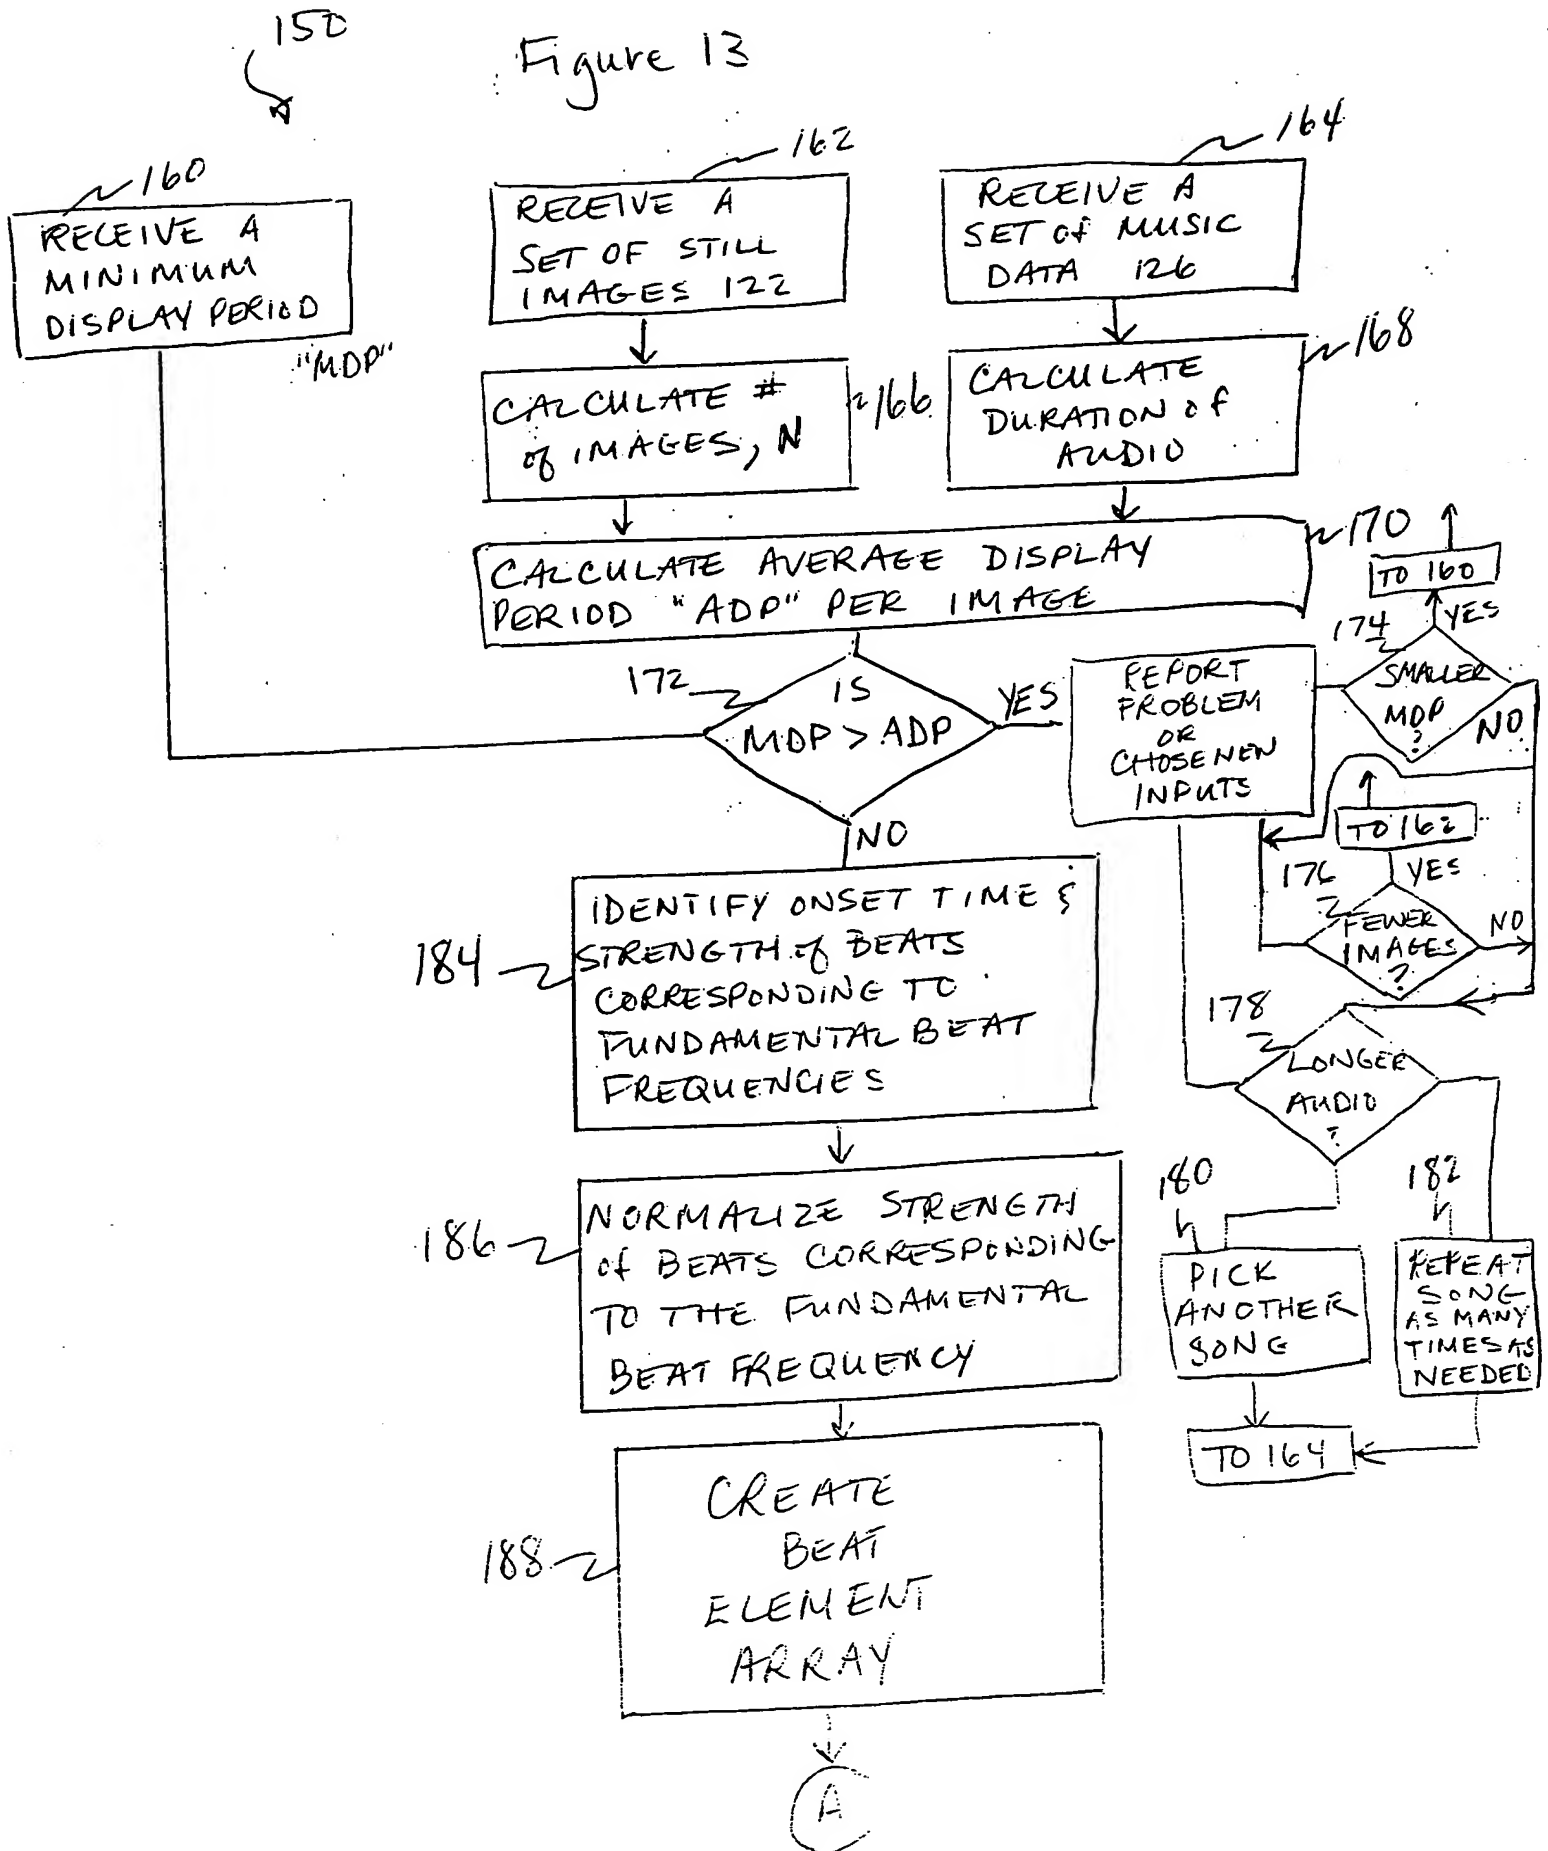 150
Figure 13
160
RECEIVE A
MINIMUM
DISPLAY PERIOD
"MDP"
162
RECEIVE A
SET OF STILL
IMAGES 122
164
RECEIVE A
SET of MUSIC
DATA 126
CALCULATE #
of IMAGES, N
166
CALCULATE
DURATION of
AUDIO
168
CALCULATE AVERAGE DISPLAY
PERIOD "ADP" PER IMAGE
170
TO 160
YES
174
SMALLER
MDP
?
NO
172
IS
MDP > ADP
YES
REPORT
PROBLEM
OR
CHOSE NEW
INPUTS
NO
TO 162
YES
176
FEWER
IMAGES
?
NO
184
IDENTIFY ONSET TIME &
STRENGTH of BEATS
CORRESPONDING TO
FUNDAMENTAL BEAT
FREQUENCIES
178
LONGER
AUDIO
?
186
NORMALIZE STRENGTH
of BEATS CORRESPONDING
TO THE FUNDAMENTAL
BEAT FREQUENCY
180
PICK
ANOTHER
SONG
182
REPEAT
SONG
AS MANY
TIMES AS
NEEDED
TO 164
188
CREATE
BEAT
ELEMENT
ARRAY
A